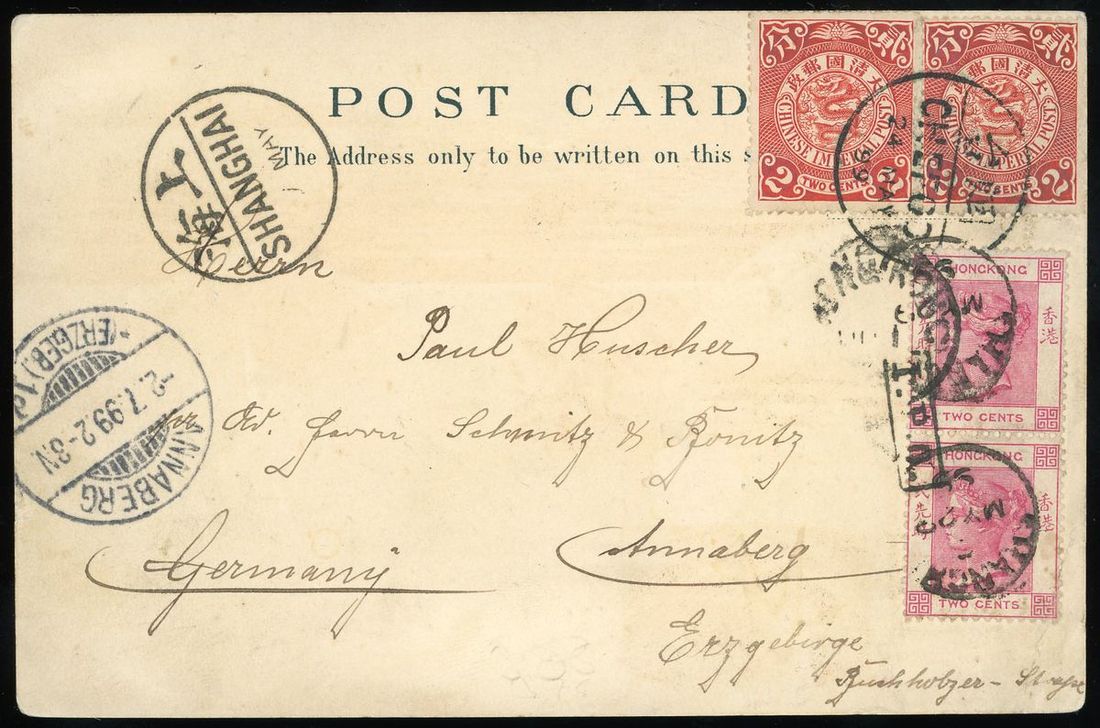 POST CARD
The Address only to be written on this s
貳分
大清國郵政
CHINESE IMPERIAL POST
2 2
TWO CENTS
貳分
大清國郵政
IMPERIAL POST
2
CHEFOO
24 MAY 99
上海
SHANGHAI
MAY
Herrn
Paul Huscher
Ad. Herrn Schmitz & Bönitz
Annaberg
Germany
Erzgebirge
Buchholzer-
HONGKONG
香港
TWO CENTS
HONGKONG
香港
TWO CENTS
ANNABERG
-2.7.99.2-3N
*(ERZGEB.)1d
HONG KONG